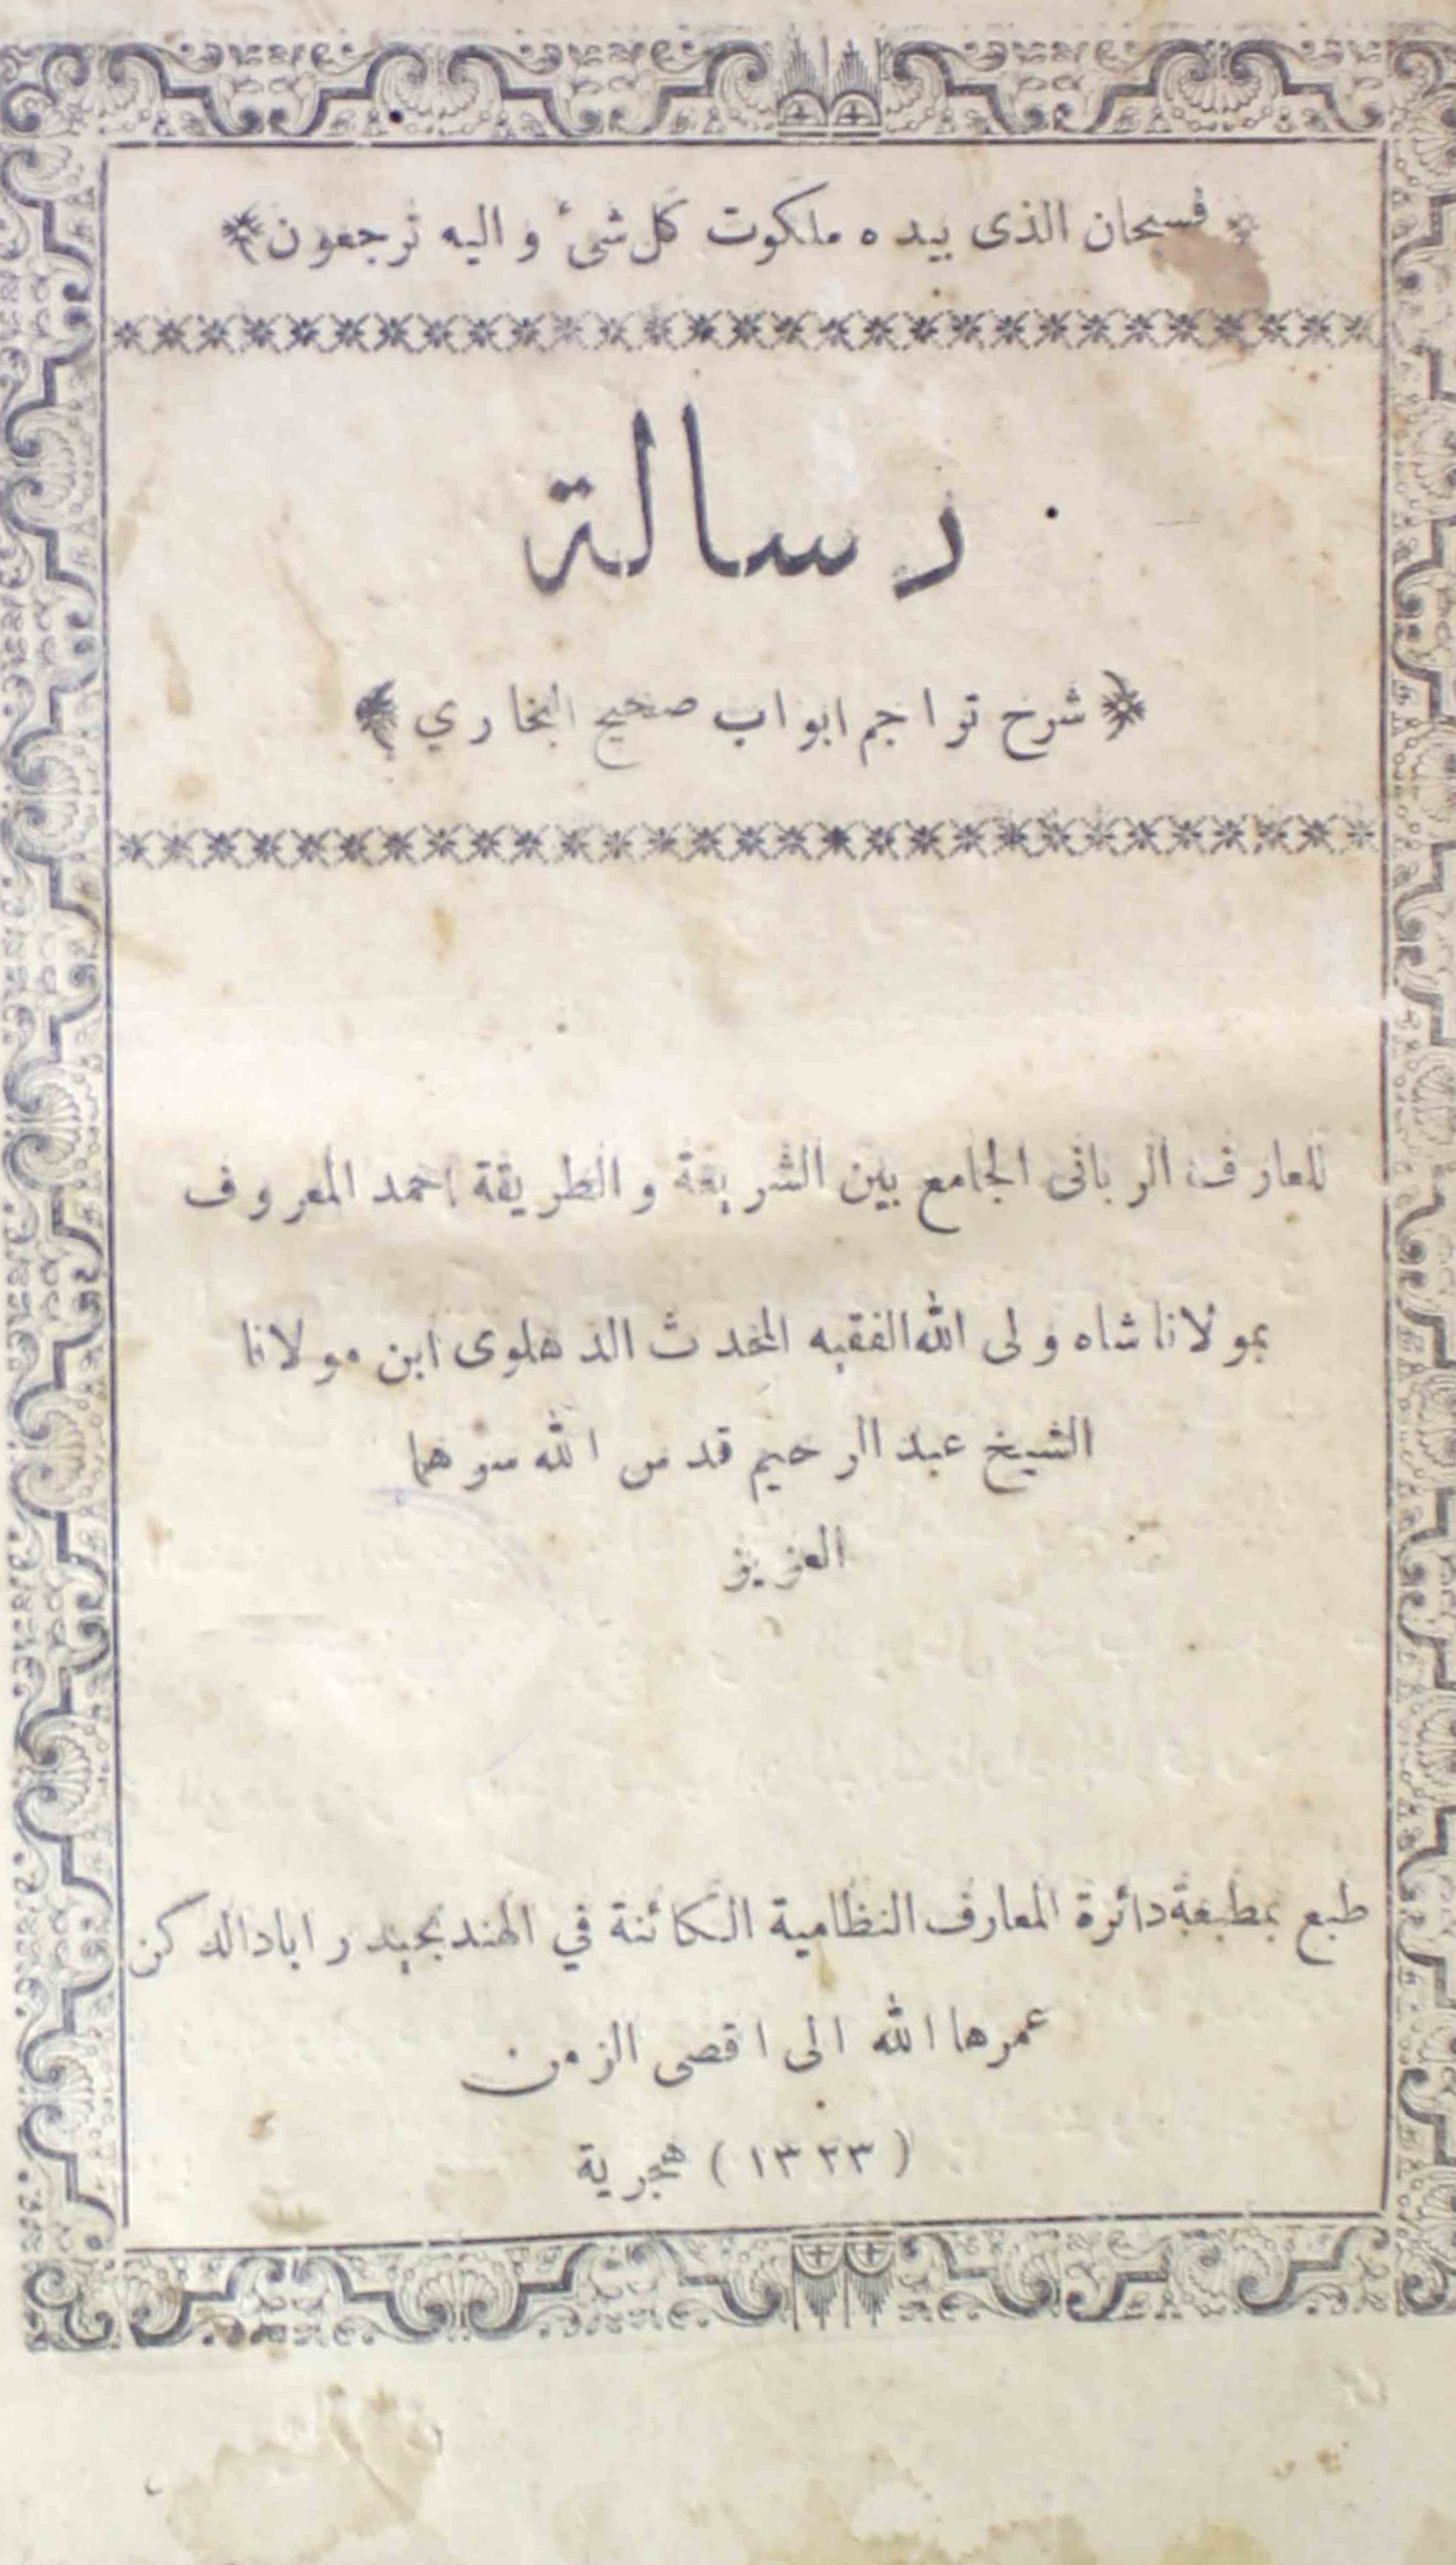 فسبحان الذى بيده ملكوت كل شىء و اليه ترجعون
رسالة
شرح تراجم ابواب صحيح البخاري
للعارف الربانى الجامع بين الشريعة و الطريقة احمد المعروف
بمولانا شاه ولى الله الفقيه المحدث الدهلوى ابن مولانا
الشيخ عبد الرحيم قدس الله سرهما
العزيز
طبع بمطبعة دائرة المعارف النظامية الكائنة في الهند بحيدر اباد الدكن
عمرها الله الى اقصى الزمن
( ١٣٢٣ ) هجرية